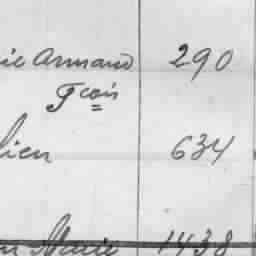 ic Armand 290
Fcois
lien 634
Marie 1438